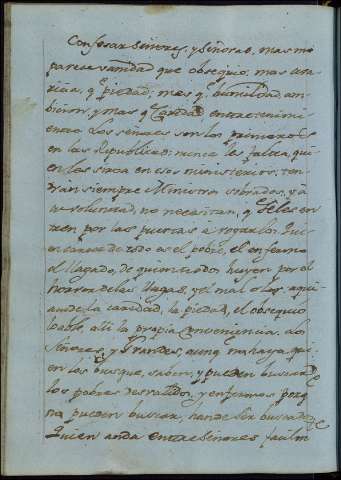 Confesar Señores, y Señoras, mas me
parece vanidad que obsequio, mas
q piedad, mas q humildad, am-
bicion, y mas q Caridad entretenimi-
ento. Los señores son los primeros
en las Republicas; nunca les falta qui-
en les sirva en esos ministerios, ten-
dran siempre Ministros sobrados, y a
su voluntad, no necesitan, q Fieles en-
tren por las puertas a rogarlos. Qui-
en carece de todo es el pobre, el enfermo
el llagado, de quien todos huyen por el
horror de las llagas, y el mal olor, aqui
anda la caridad, la piedad, el obsequio
alli la propia conveniencia. Los
Señores, y Grandes, aunq no haya qui-
en los busque, saben, y pueden buscar
los pobres desvalidos, y enfermos porq
no pueden buscar, han de ser buscados
Quien anda entre Señores facilm